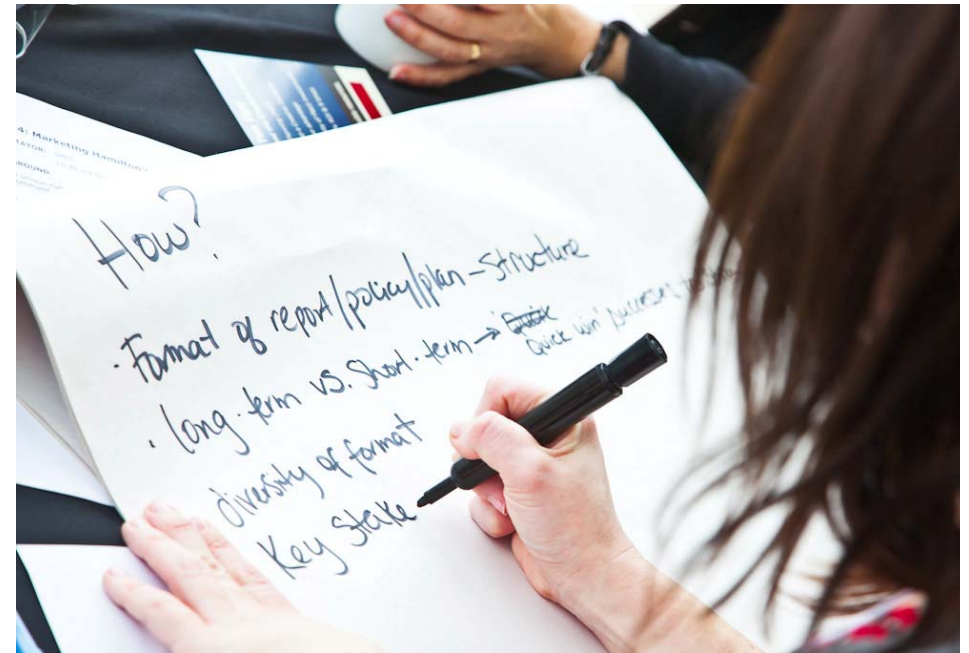 4: Marketing Hamilton
How?
· Format of report/policy/plan - Structure
· long-term vs. Short-term → Quick
Quick win successes
diversity of format
Key Stake